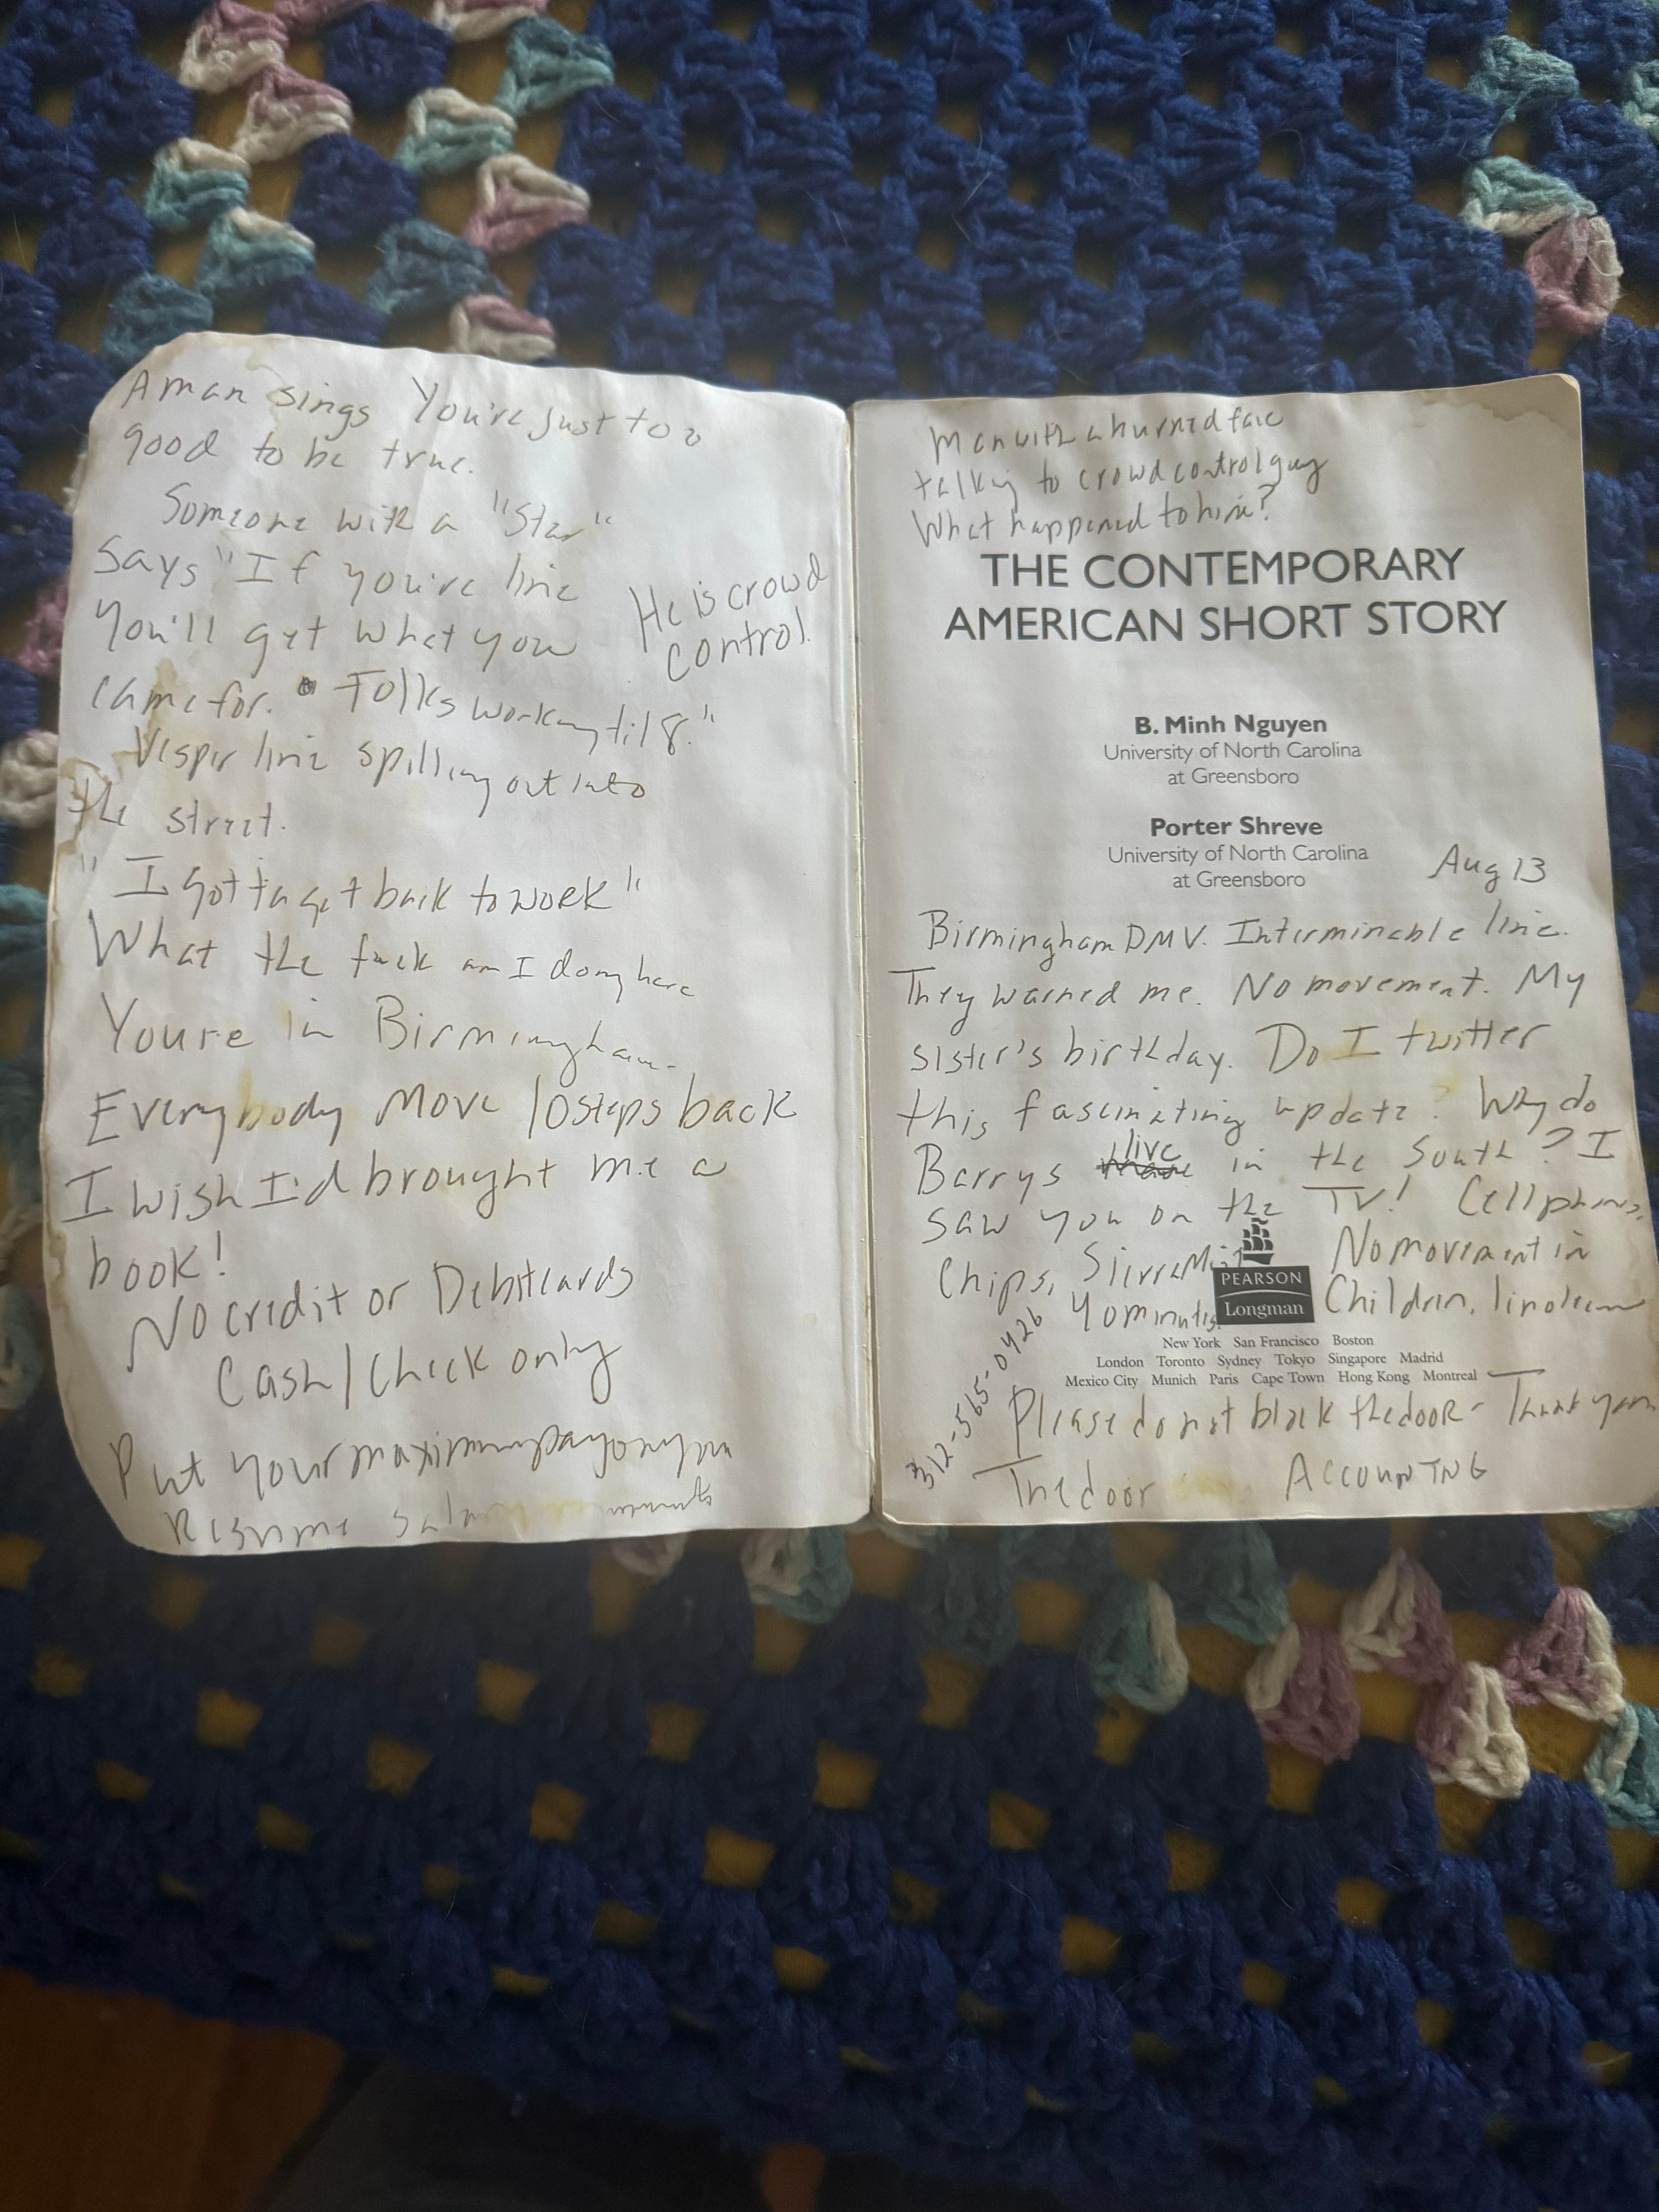 A man sings You're just too
good to be true.
Someone with a "Star"
Says "If you're line
You'll get what you
came for. Folks working til 8."
He is crowd
control.
Vespir line spilling out into
the street.
"I gotta get back to work"
What the fuck am I doing here
Youre in Birmingham.
Everybody move 10 steps back
I wish I'd brought me a
book!
No credit or Debitcards
Cash/Check only
Put your maximum pay on your
Resume salary
Man with a burned face
talking to crowd control guy
What happened to him?
THE CONTEMPORARY
AMERICAN SHORT STORY
B. Minh Nguyen
University of North Carolina
at Greensboro
Porter Shreve
University of North Carolina
at Greensboro
Aug 13
Birmingham DMV. Interminable line.
They warned me. No movement. My
sister's birthday. Do I twitter
this fascinating update? Why do
Barrys live in the South? I
saw you on the TV! Cellphones,
Chips, Sierra Mist No movement in
40 minutes. Children, linoleum
PEARSON
Longman
New York San Francisco Boston
London Toronto Sydney Tokyo Singapore Madrid
Mexico City Munich Paris Cape Town Hong Kong Montreal
312-565-0426
Please do not block the door - Thank you
The door ACCOUNTING